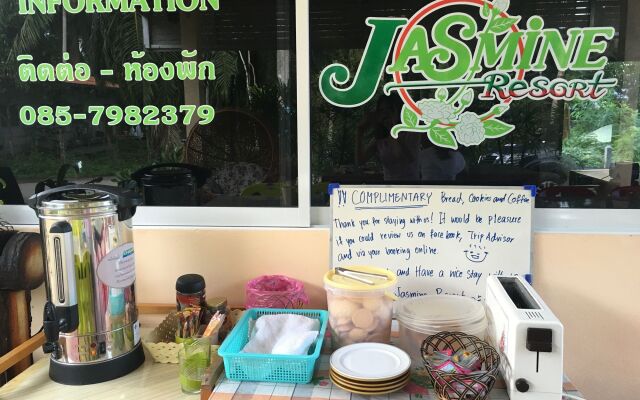 INFORMATION
ติดต่อ - ห้องพัก
085-7982379
JASMINE
Resort
COMPLIMENTARY Bread, Cookies and Coffee
Thank you for staying with us! It would be pleasure
if you could review us on Facebook, TripAdvisor
and via your booking online.
and Have a nice stay with
Jasmine Resort